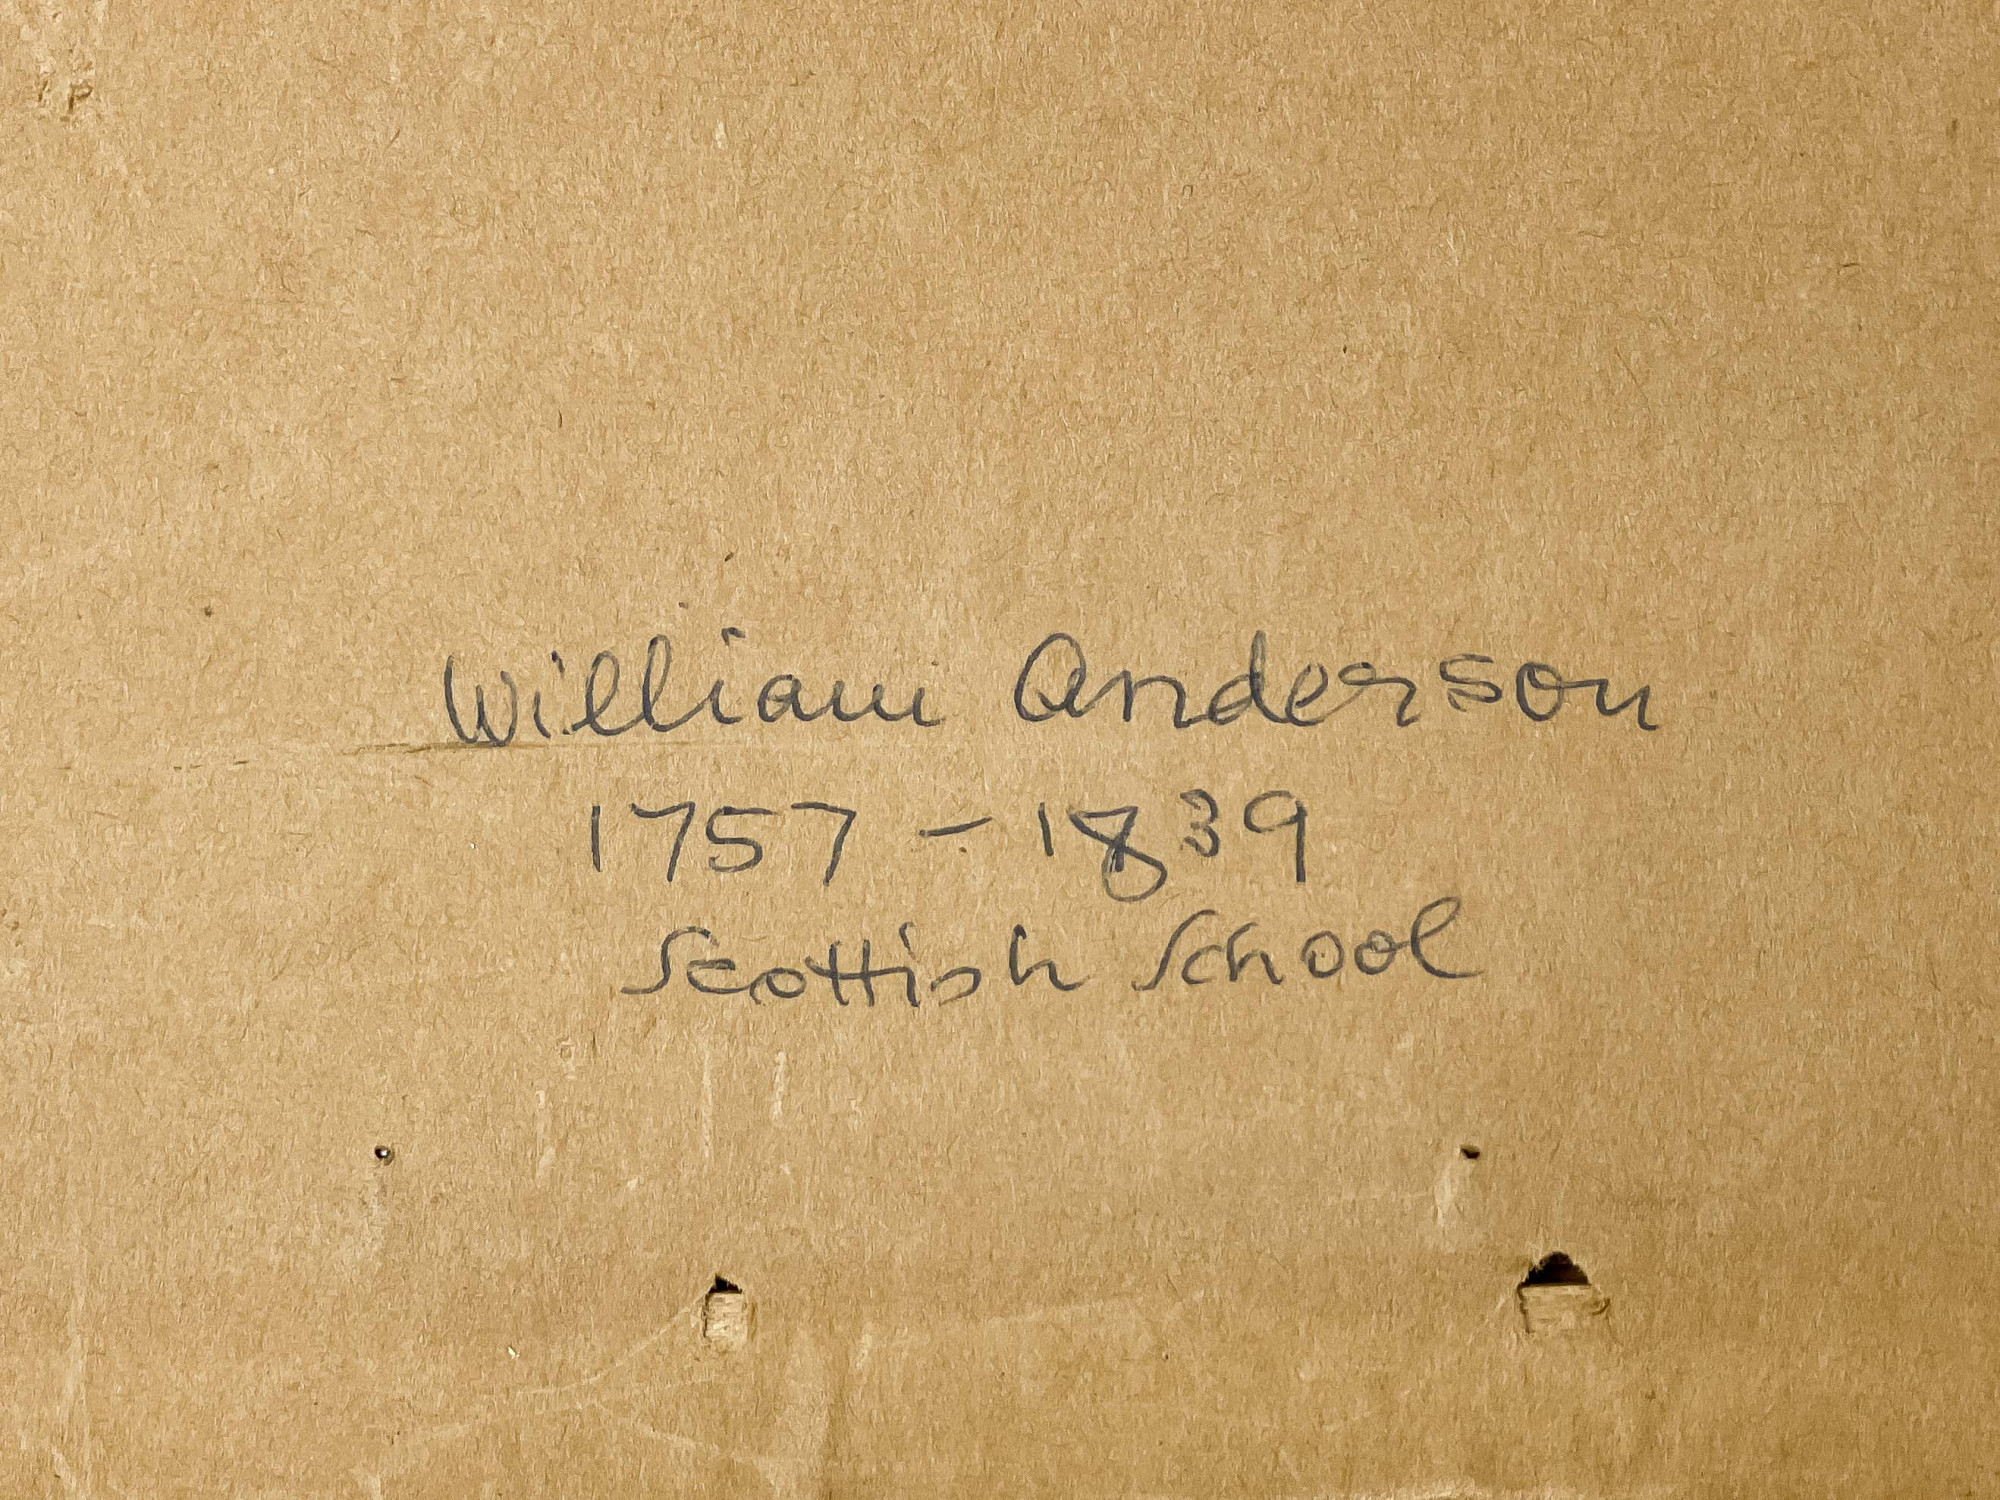 William Anderson
1757 - 1839
Scottish School